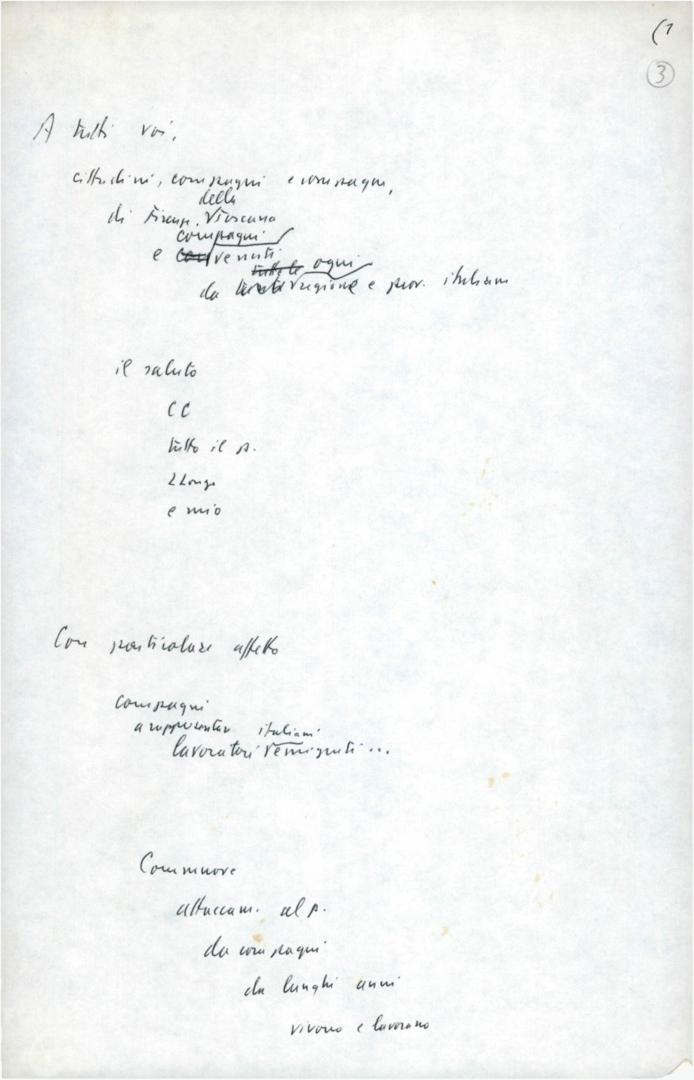 (1
3
A tutti voi,
cittadini, compagni e compagne,
della
di Firenze, Toscana
compagni
e con venuti
tutte le ogni
da regione e prov. italiana
il saluto
CC
tutto il p.
LLongo
e mio
Con particolare affetto
compagni
a rappresentare italiani
lavoratori emigrati ...
Commuove
attaccam. al p.
da compagni
da lunghi anni
vivono e lavorano